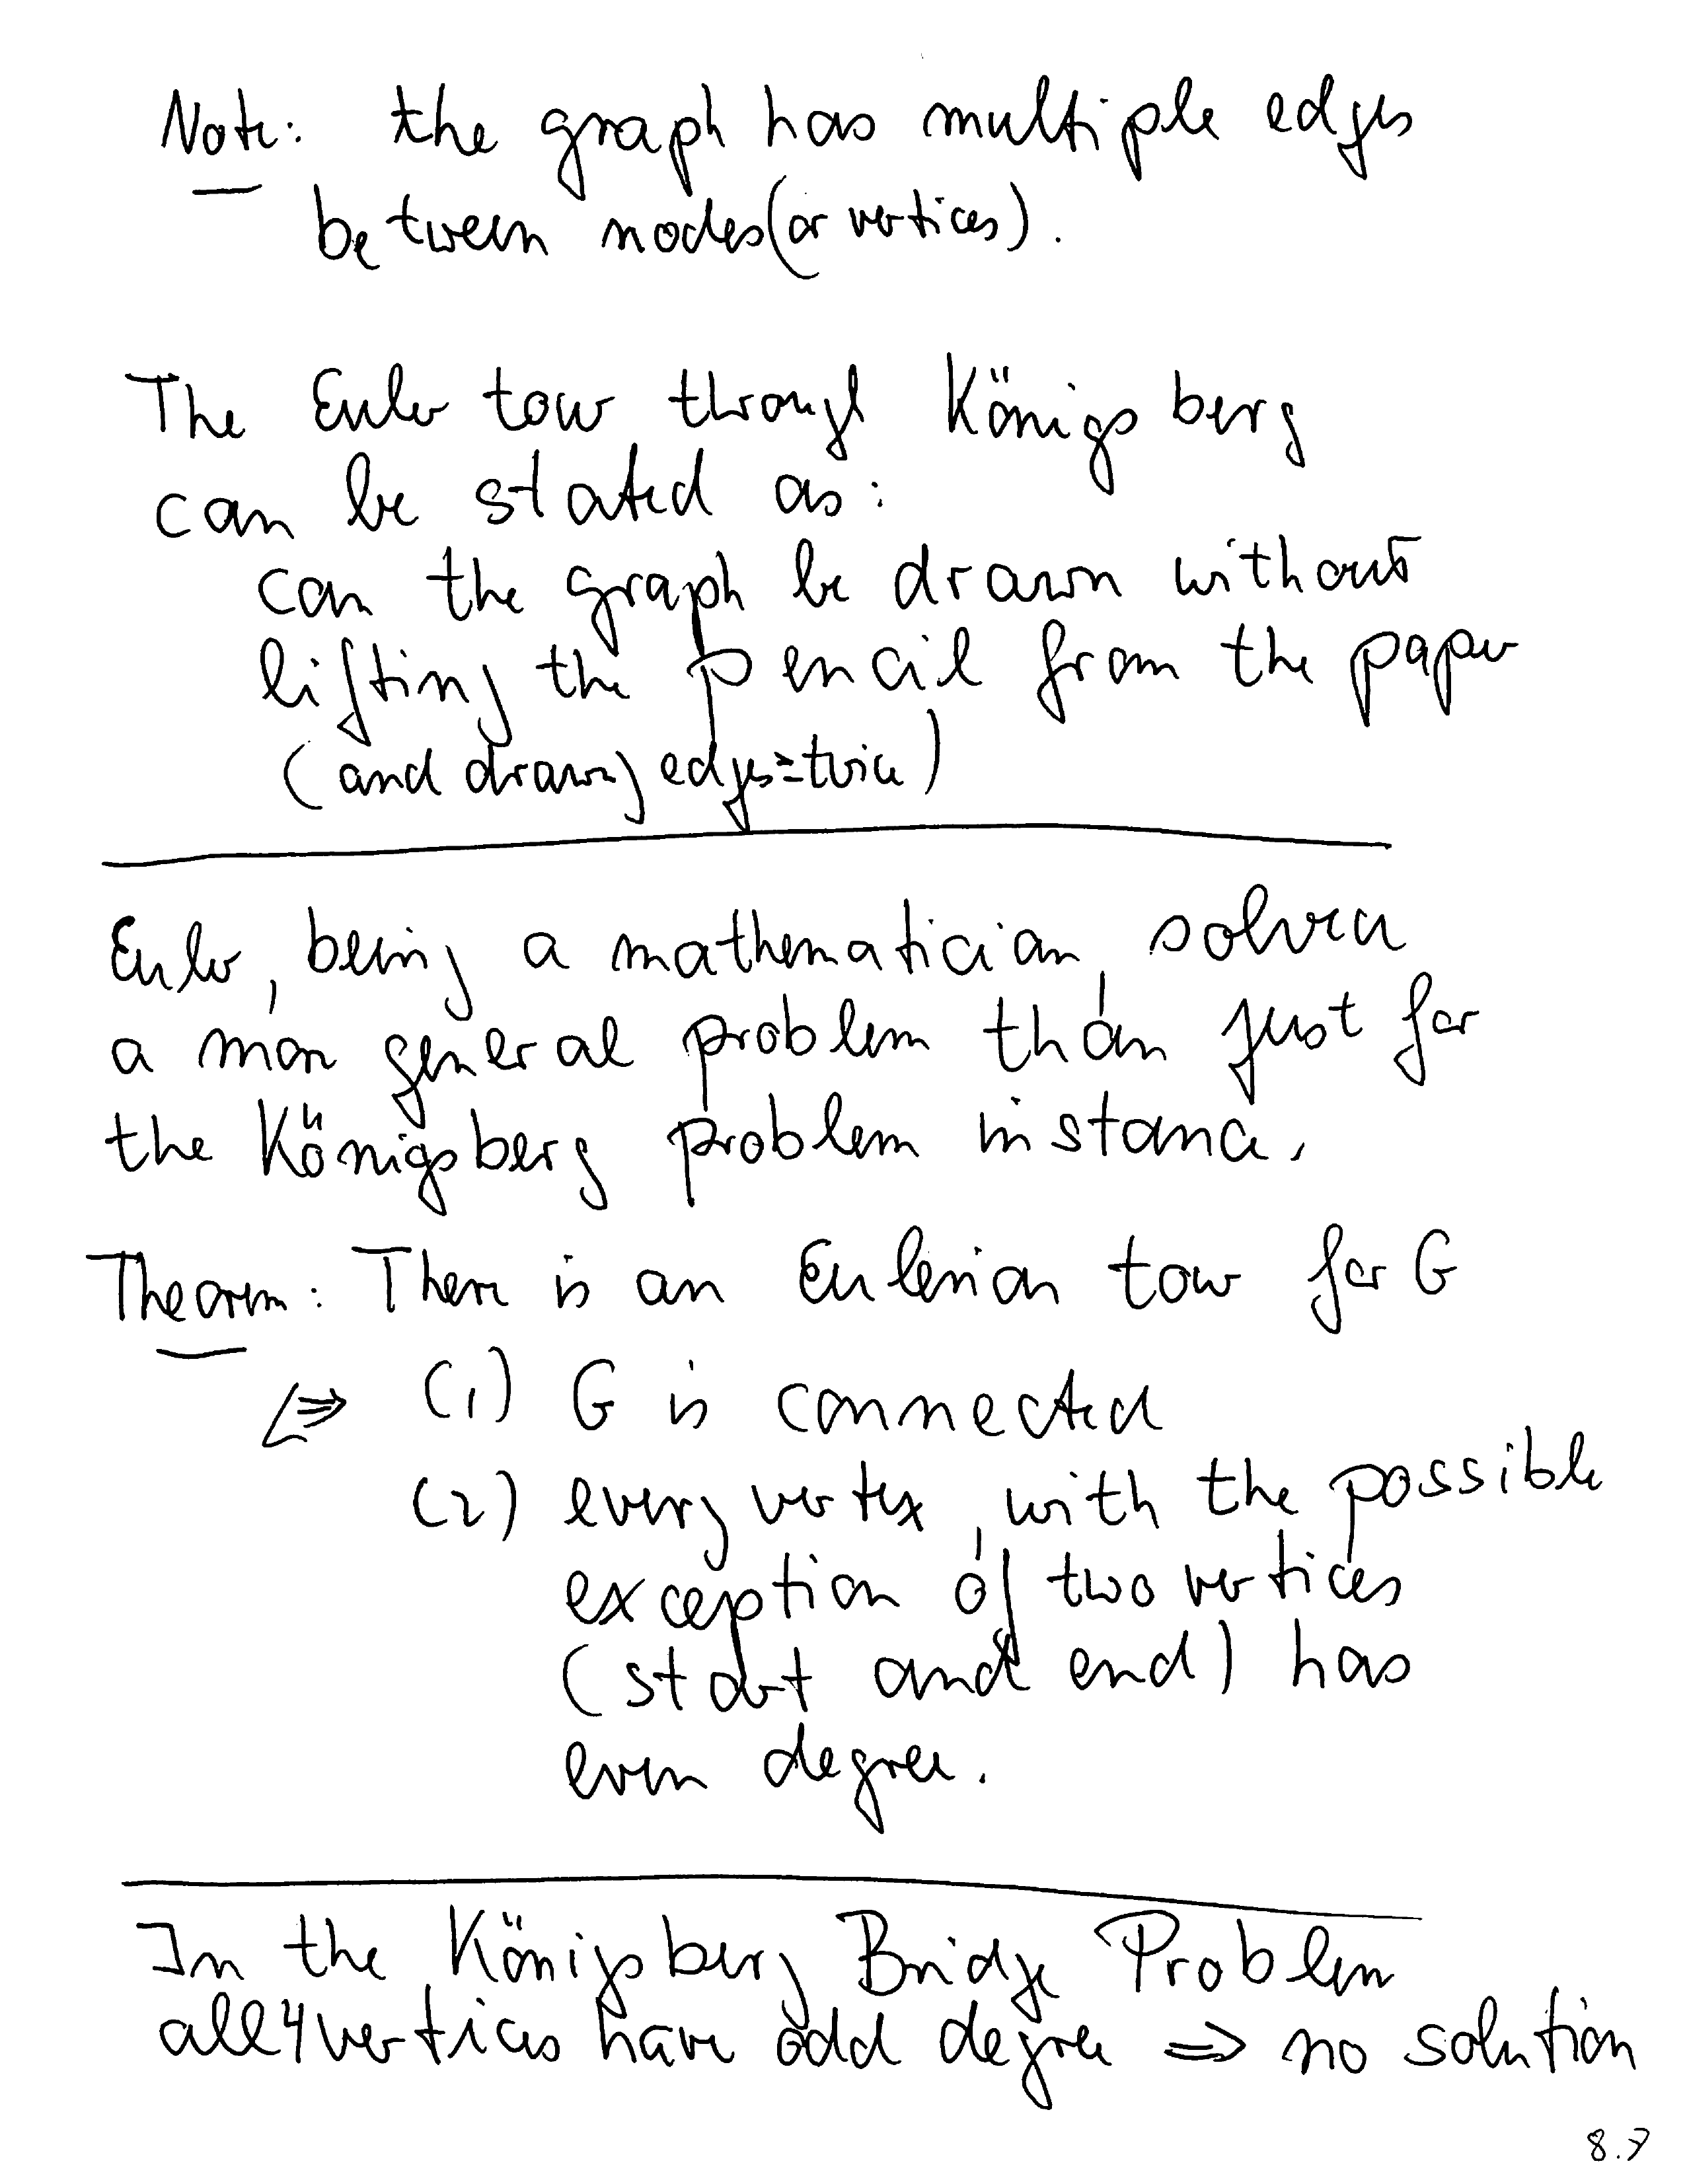 Note: the graph has multiple edges
between nodes (or vertices).
The Euler tour through Königsberg
can be stated as:
can the graph be drawn without
lifting the pencil from the paper
(and drawing edges twice)
Euler, being a mathematician, solved
a more general problem than just for
the Königsberg problem instance.
Theorem: There is an Eulerian tour for G
⇔ (1) G is connected
(2) every vertex, with the possible
exception of two vertices
(start and end) has
even degree.
In the Königsberg Bridge Problem
all 4 vertices have odd degree ⇒ no solution
8.7